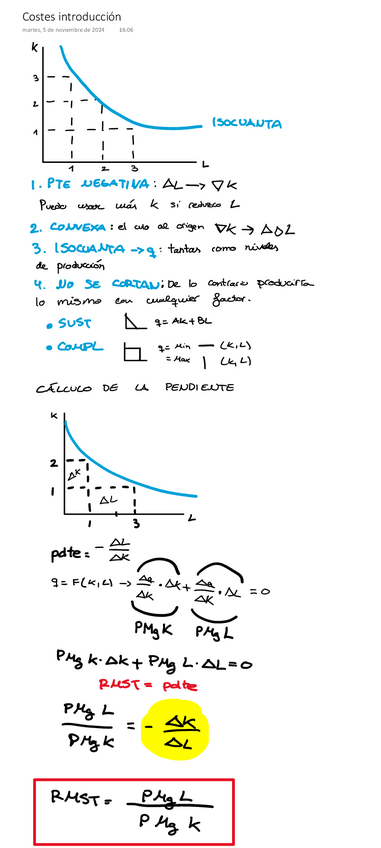 Costes introducción
martes, 5 de noviembre de 2024 16:06
K
3
2
1
1 2 3
L
ISOCUANTA
1. PTE NEGATIVA: ΔL → ∇K
Puedo usar más K si reduzco L
2. CONVEXA: el uso al origen ∇K → ΔΔL
3. ISOCUANTA → q: tantas como niveles
de producción
4. NO SE CORTAN: De lo contrario produciría
lo mismo con cualquier factor.
• SUST q = AK + BL
• COMPL q = Min — (K, L)
= Max | (K, L)
CÁLCULO DE LA PENDIENTE
K
2
ΔK
1
ΔL
1 3
L
pdte = - ΔL/ΔK
q = F(K, L) → Δq/ΔK · ΔK + Δq/ΔK · ΔL = 0
PMg K PMg L
PMg K · ΔK + PMg L · ΔL = 0
RMST = pdte
PMg L / PMg K = - ΔK/ΔL
RMST = PMg L / PMg K